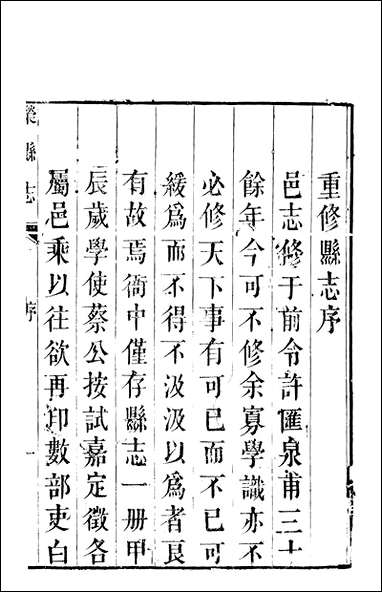 重修縣志序
邑志修于前令許匯泉甫三十
餘年今可不修余寡學識亦不
必修天下事有可已而不已可
緩為而不得不汲汲以為者良
有故焉衙中僅存縣志一册甲
辰歲學使蔡公按試嘉定徵各
屬邑乘以往欲再印數部吏白
榮縣志
序
一